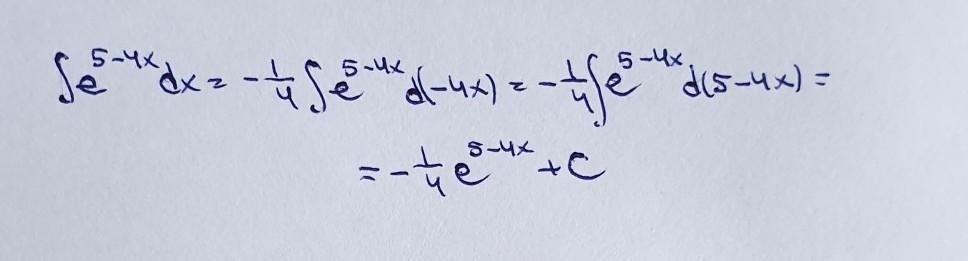 ∫e^{5-4x}dx = -\frac{1}{4}∫e^{5-4x}d(-4x) = -\frac{1}{4}∫e^{5-4x}d(5-4x) =
= -\frac{1}{4}e^{5-4x}+C